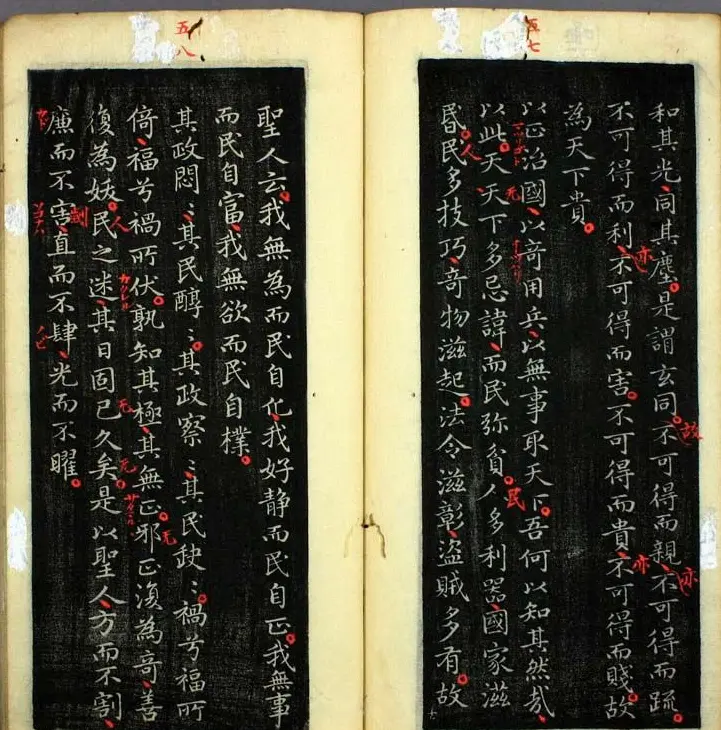 五七
和其光同其塵是謂玄同不可得而親不可得而疏
不可得而利不可得而害不可得而貴不可得而賤故
為天下貴
以正治國以奇用兵以無事取天下吾何以知其然哉
以此天天下多忌諱而民弥貧人多利器國家滋
昬民多技巧奇物滋起法令滋彰盜賊多有故
故
亦
亦
亦
无
民
人
五八
聖人云我無為而民自化我好静而民自正我無事
而民自富我無欲而民自樸
其政悶〻其民醇〻其政察〻其民缺〻禍兮福所
倚福兮禍所伏孰知其極其無正邪正復為奇善
復為妖民之迷其日固已久矣是以聖人方而不割
廉而不害直而不肆光而不曜
无
无
无
人
劌